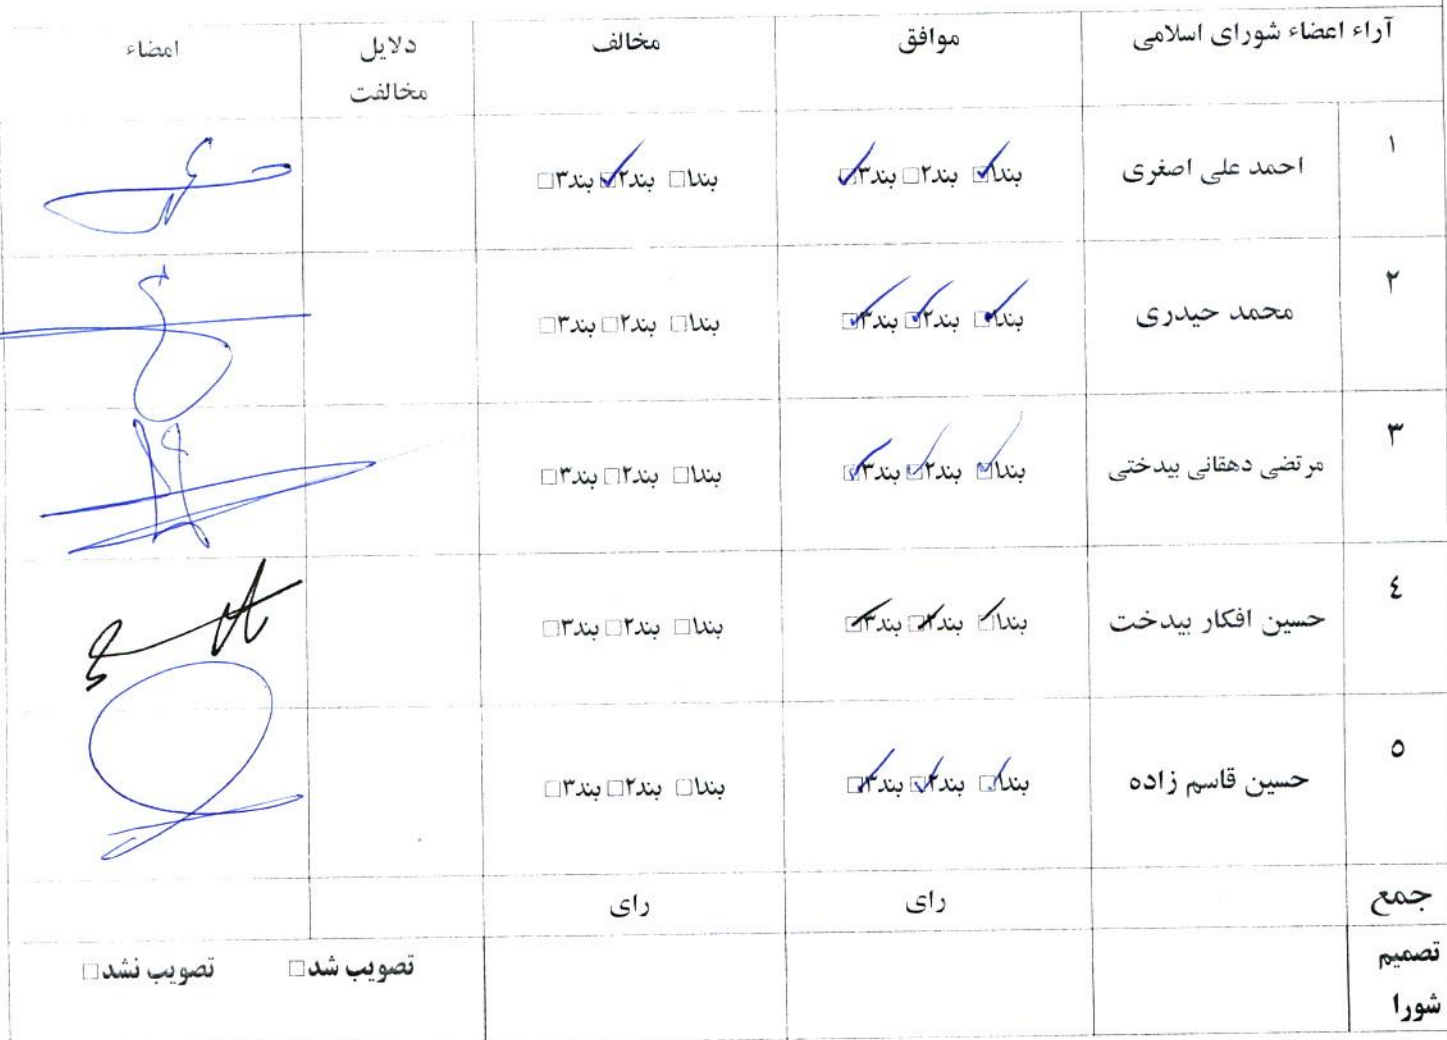 آراء اعضاء شورای اسلامی موافق مخالف دلایل مخالفت امضاء
۱ احمد علی اصغری بند۱☑ بند۲☐ بند۳☑ بند۱☐ بند۲☑ بند۳☐
۲ محمد حیدری بند۱☑ بند۲☑ بند۳☑ بند۱☐ بند۲☐ بند۳☐
۳ مرتضی دهقانی بیدختی بند۱☑ بند۲☑ بند۳☑ بند۱☐ بند۲☐ بند۳☐
٤ حسین افکار بیدخت بند۱☑ بند۲☑ بند۳☑ بند۱☐ بند۲☐ بند۳☐
٥ حسین قاسم زاده بند۱☑ بند۲☑ بند۳☑ بند۱☐ بند۲☐ بند۳☐
جمع رای رای
تصمیم شورا تصویب شد☐ تصویب نشد☐